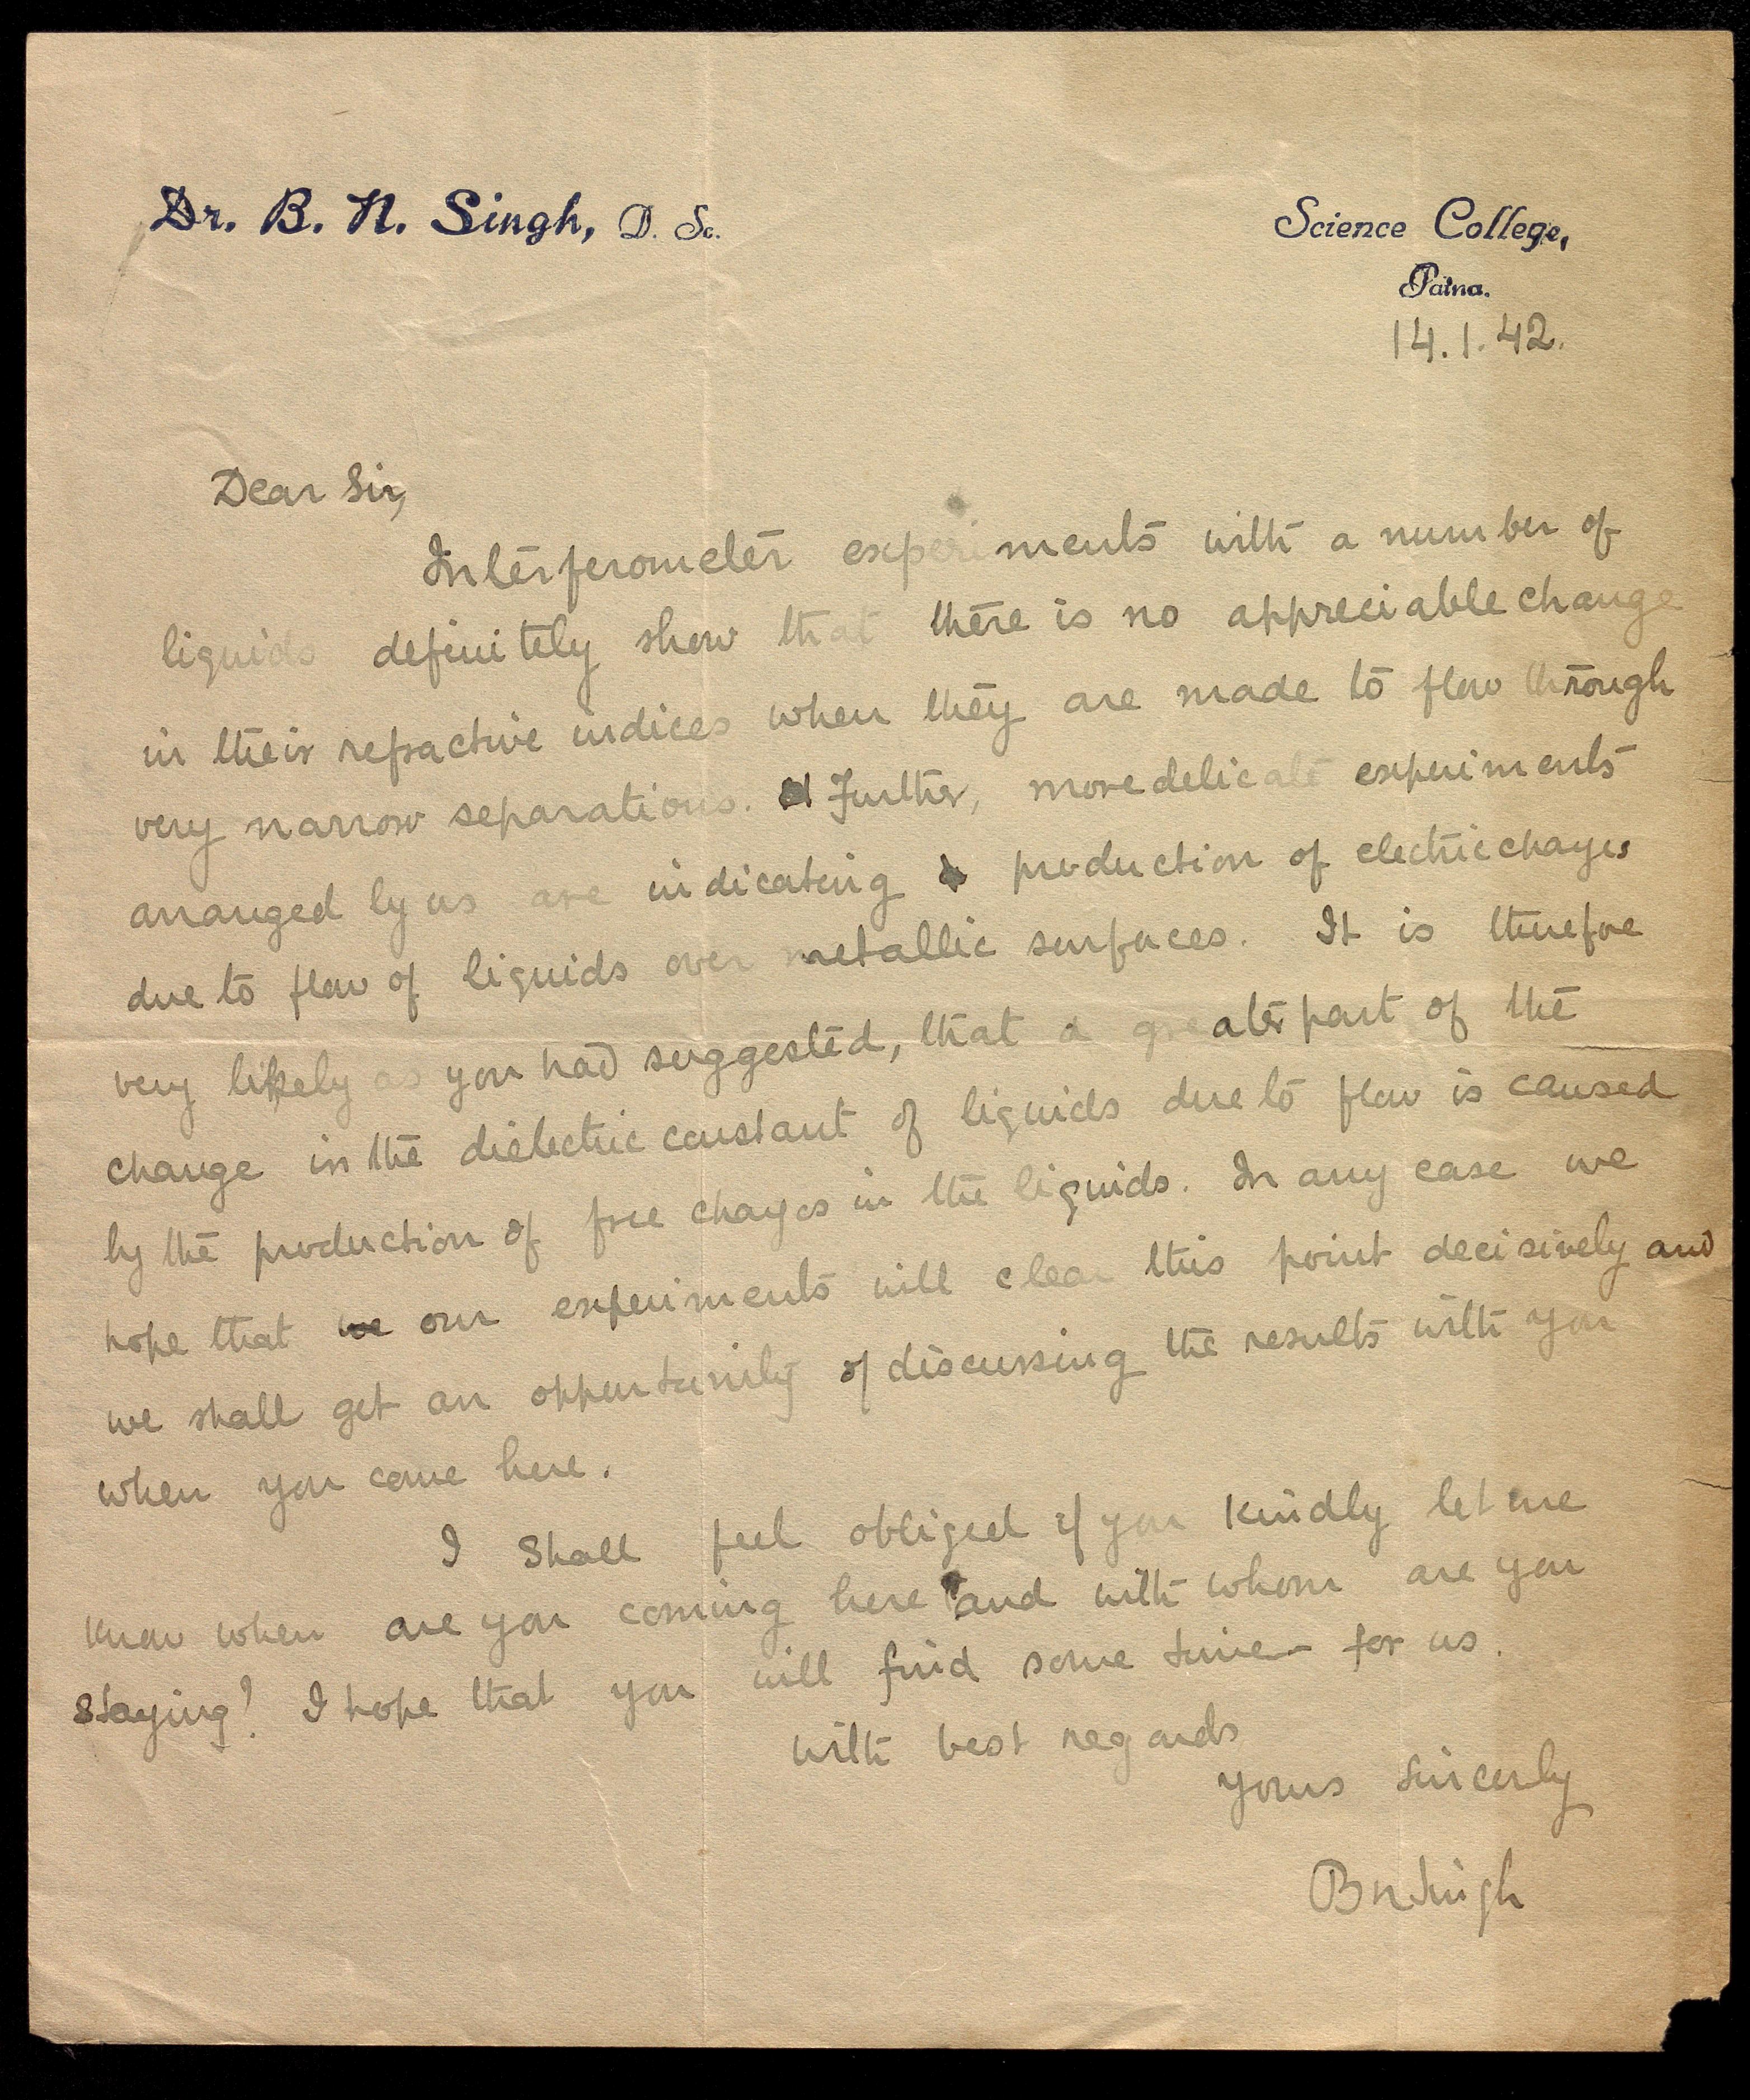 Dr. B. N. Singh, D. Sc.
Science College,
Patna.
14.1.42.
Dear Sir,
Interferometer experiments with a number of
liquids definitely show that there is no appreciable change
in their refractive indices when they are made to flow through
very narrow separations. Further, more delicate experiments
arranged by us are indicating production of electric charges
due to flow of liquids over metallic surfaces. It is therefore
very likely as you had suggested, that a greater part of the
change in the dielectric constant of liquids due to flow is caused
by the production of free charges in the liquids. In any case we
hope that we our experiments will clear this point decisively and
we shall get an opportunity of discussing the results with you
when you come here.
I shall feel obliged if you kindly let me
know when are you coming here and with whom are you
staying? I hope that you will find some time for us.
with best regards
yours sincerly
BN Singh